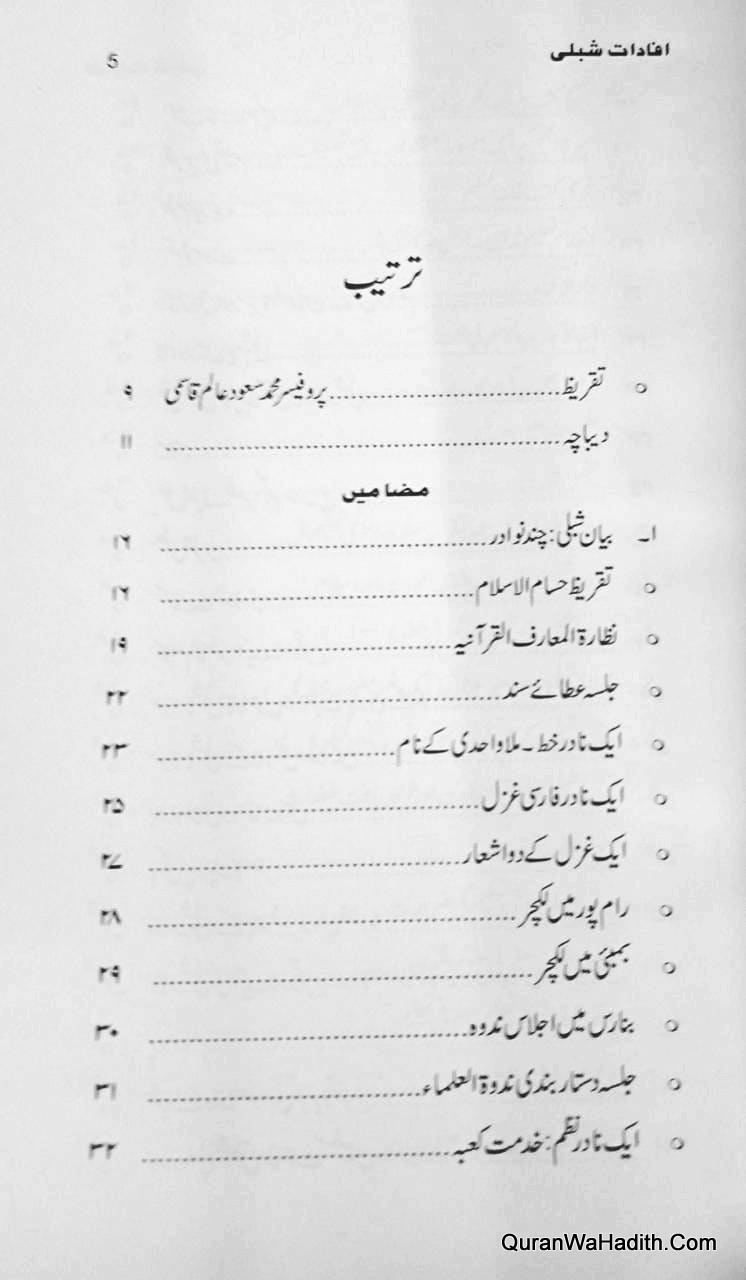 افادات شبلی 5
ترتیب
○ تقریظ ........ پروفیسر محمد سعود عالم قاسمی ۹
دیباچہ ........ ۱۱
مضامیں
۱۔ بیان شبلی: چند نوادر ........ ۱۶
○ تقریظ حسام الاسلام ........ ۱۶
○ نظارۃ المعارف القرآنیہ ........ ۱۹
○ جلسہ عطائے سند ........ ۲۲
○ ایک نادر خط۔ ملا واحدی کے نام ........ ۲۳
○ ایک نادر فارسی غزل ........ ۲۵
○ ایک غزل کے دو اشعار ........ ۲۷
○ رام پور میں لکچر ........ ۲۸
○ بمبئی میں لکچر ........ ۲۹
○ بنارس میں اجلاس ندوہ ........ ۳۰
○ جلسہ دستار بندی ندوۃ العلماء ........ ۳۱
○ ایک نادر نظم: خدمت کعبہ ........ ۳۲
QuranWaHadith.Com